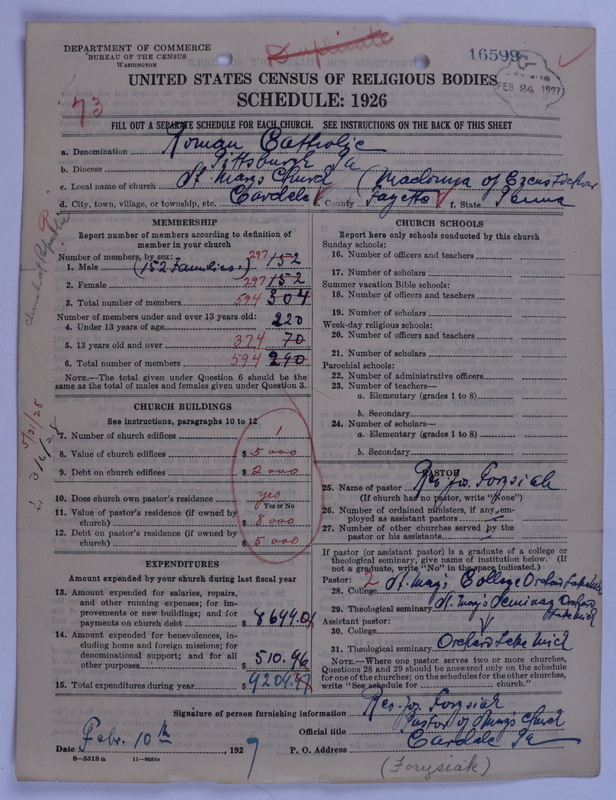 DEPARTMENT OF COMMERCE
BUREAU OF THE CENSUS
WASHINGTON
Duplicate
16599
FEB 24 1927
73
UNITED STATES CENSUS OF RELIGIOUS BODIES
SCHEDULE: 1926
FILL OUT A SEPARATE SCHEDULE FOR EACH CHURCH. SEE INSTRUCTIONS ON THE BACK OF THIS SHEET
a. Denomination Roman Catholic
b. Diocese Pittsburgh Pa
c. Local name of church St. Marys Church (Madonna of Czenstochowa
d. City, town, village, or township, etc. Cardale County Fayette f. State Penna
MEMBERSHIP
Report number of members according to definition of member in your church
Number of members, by sex:
1. Male (152 Families.) 297 152
2. Female 297 152
3. Total number of members 594 304
Number of members under and over 13 years old:
4. Under 13 years of age 220
5. 13 years old and over 374 70
6. Total number of members 594 290
NOTE.—The total given under Question 6 should be the same as the total of males and females given under Question 3.
CHURCH BUILDINGS
See instructions, paragraphs 10 to 12
7. Number of church edifices 1
8. Value of church edifices $ 5000
9. Debt on church edifices $ 2000
10. Does church own pastor's residence yes
Yes or No
11. Value of pastor's residence (if owned by church) $ 8000
12. Debt on pastor's residence (if owned by church) $ 5000
5/31/28
EXPENDITURES
Amount expended by your church during last fiscal year
13. Amount expended for salaries, repairs, and other running expenses; for improvements or new buildings; and for payments on church debt $ 8694.01
14. Amount expended for benevolences, including home and foreign missions; for denominational support; and for all other purposes $ 510.96
15. Total expenditures during year $ 9204.97
CHURCH SCHOOLS
Report here only schools conducted by this church
Sunday schools:
16. Number of officers and teachers
17. Number of scholars
Summer vacation Bible schools:
18. Number of officers and teachers
19. Number of scholars
Week-day religious schools:
20. Number of officers and teachers
21. Number of scholars
Parochial schools:
22. Number of administrative officers
23. Number of teachers—
a. Elementary (grades 1 to 8)
b. Secondary
24. Number of scholars—
a. Elementary (grades 1 to 8)
b. Secondary
PASTOR
25. Name of pastor Rev. Jos. Forysiak
(If church has no pastor, write "None")
26. Number of ordained ministers, if any, employed as assistant pastors
27. Number of other churches served by the pastor or his assistants
If pastor (or assistant pastor) is a graduate of a college or theological seminary, give name of institution below. (If not a graduate, write "No" in the space indicated.)
Pastor: 2
28. College St. Mary's College Orchard Lake Mich
29. Theological seminary St. Mary's Seminary Orchard Lake Mich
Assistant pastor:
30. College
31. Theological seminary Orchard Lake Mich
NOTE.—Where one pastor serves two or more churches, Questions 28 and 29 should be answered only on the schedule for one of the churches; on the schedules for the other churches, write "See schedule for church."
Signature of person furnishing information Rev. Jos. Forysiak
Official title Pastor of St. Marys Church
Date Febr. 10th, 1927 P. O. Address Cardale Pa
8-5518a 11-9054a
(Forysiak)